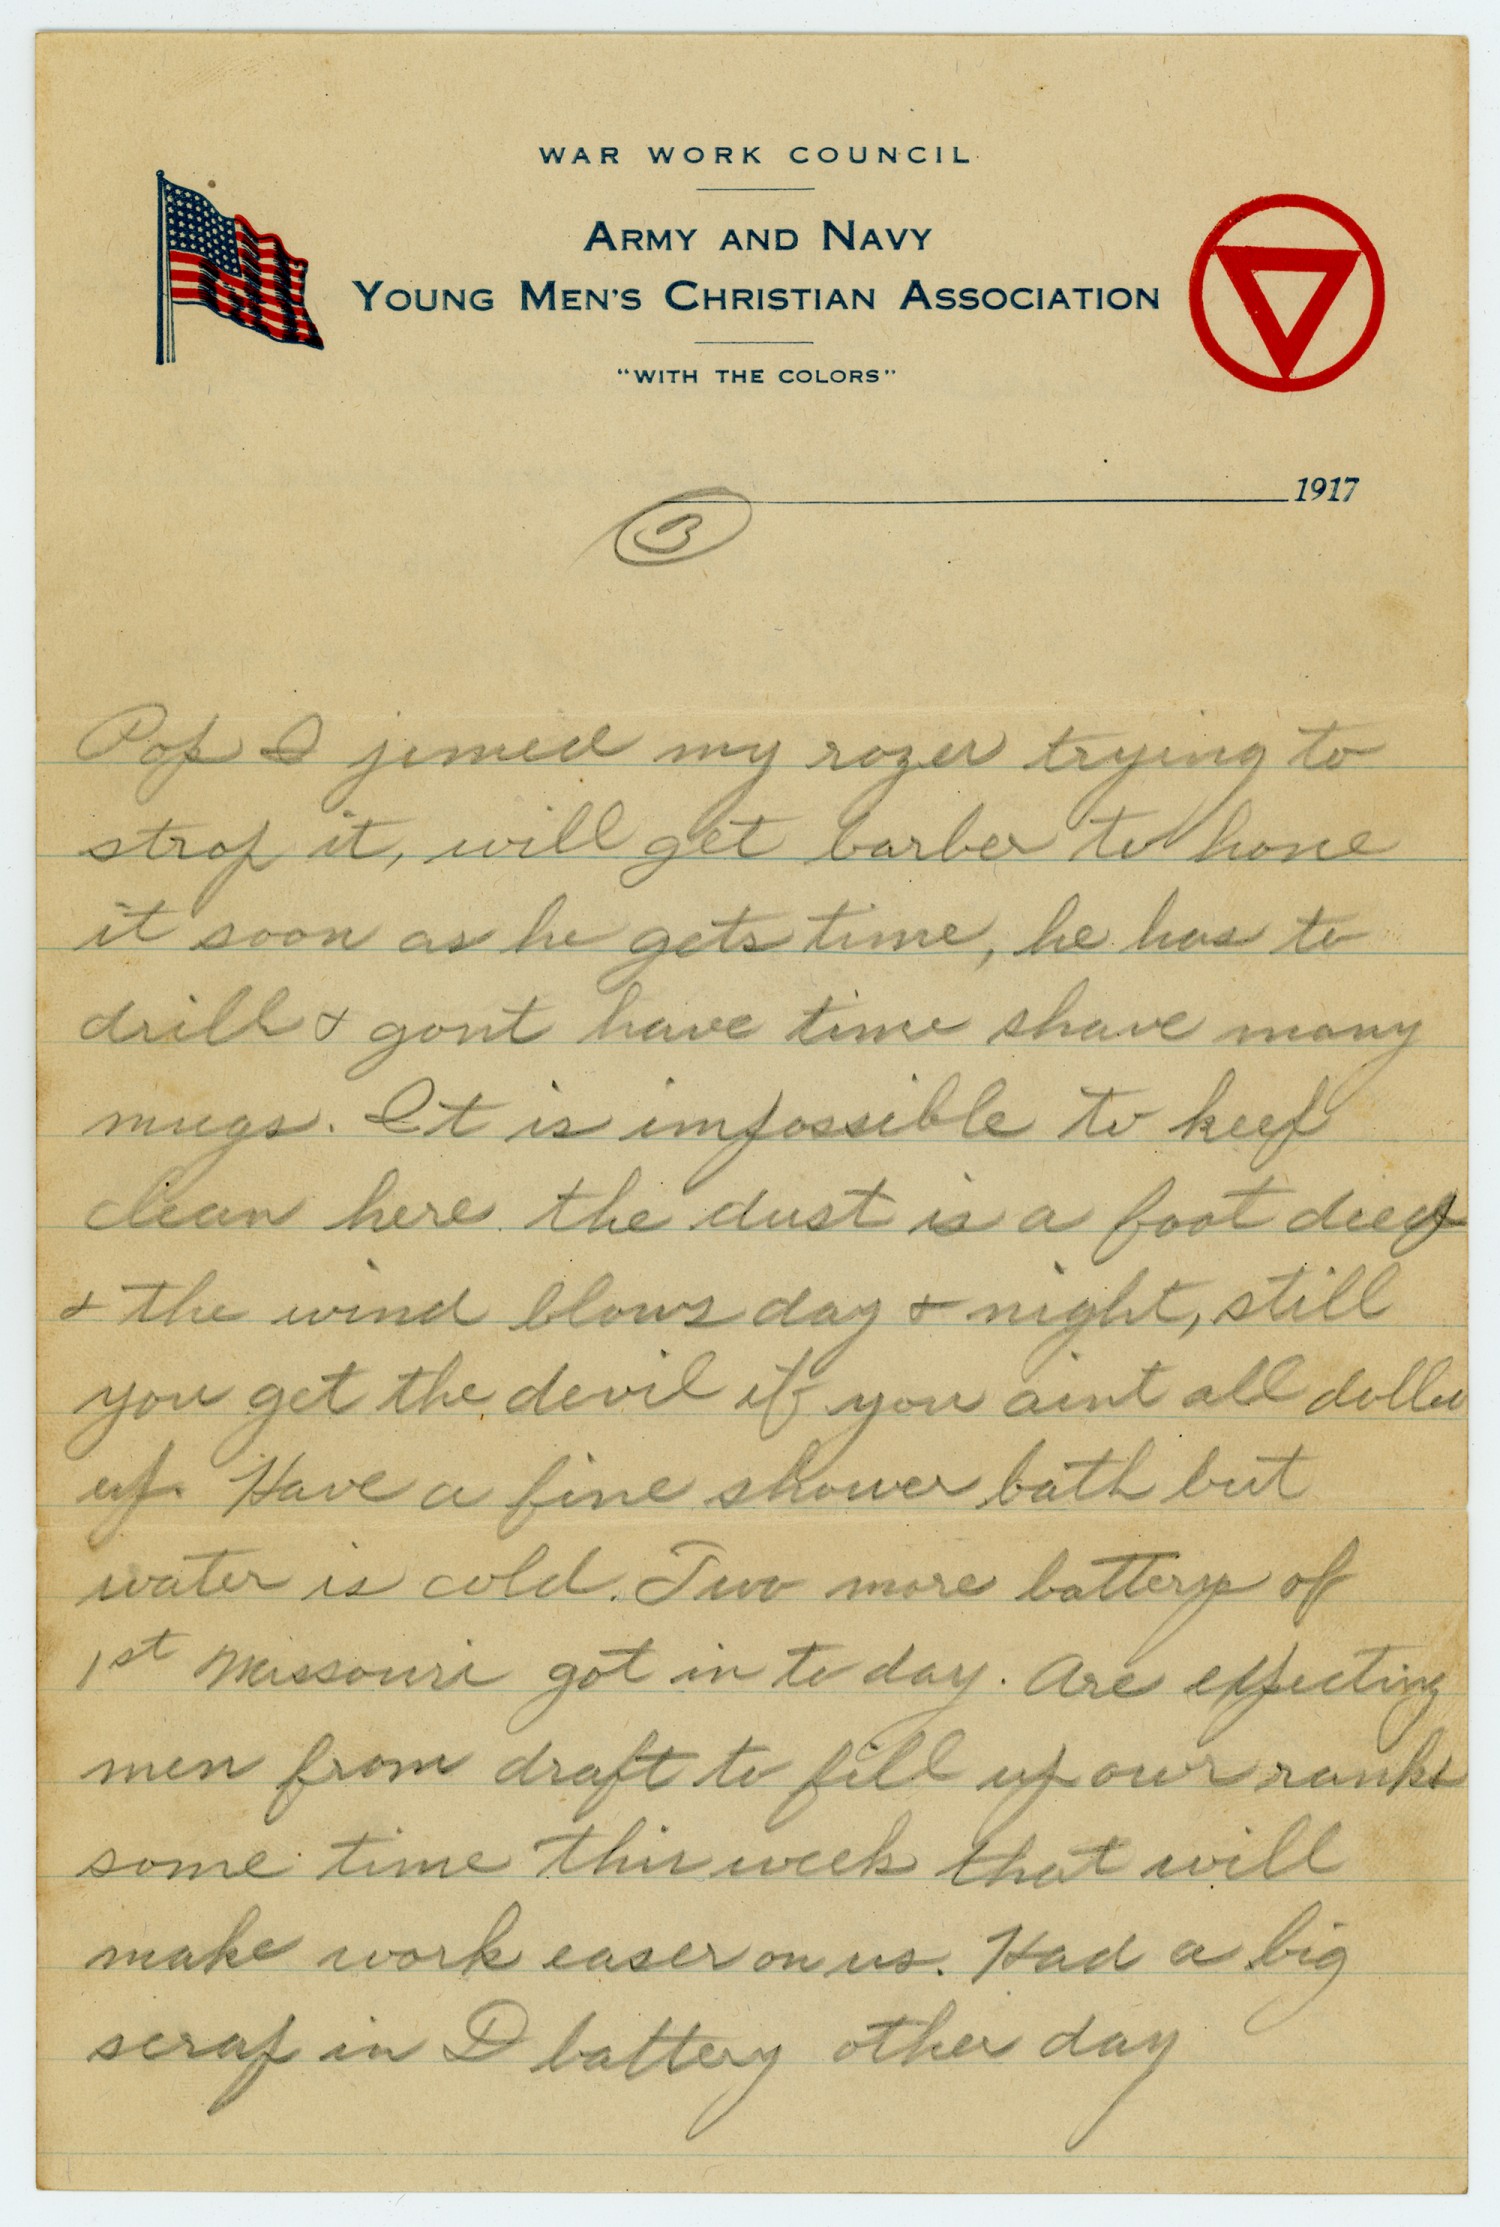 WAR WORK COUNCIL
ARMY AND NAVY
YOUNG MEN'S CHRISTIAN ASSOCIATION
"WITH THE COLORS"
1917
3
Pop I jimed my rozer trying to
strop it, will get barber to hone
it soon as he gets time, he has to
drill & gont have time shave many
mugs. It is impossible to keep
clean here the dust is a foot deep
& the wind blows day & night, still
you get the devil if you aint all dolled
up. Have a fine shower bath but
water is cold. Two more batterys of
1st Missouri got in to day. Are expecting
men from draft to fill up our ranks
some time this week that will
make work easer on us. Had a big
scrap in D battery other day